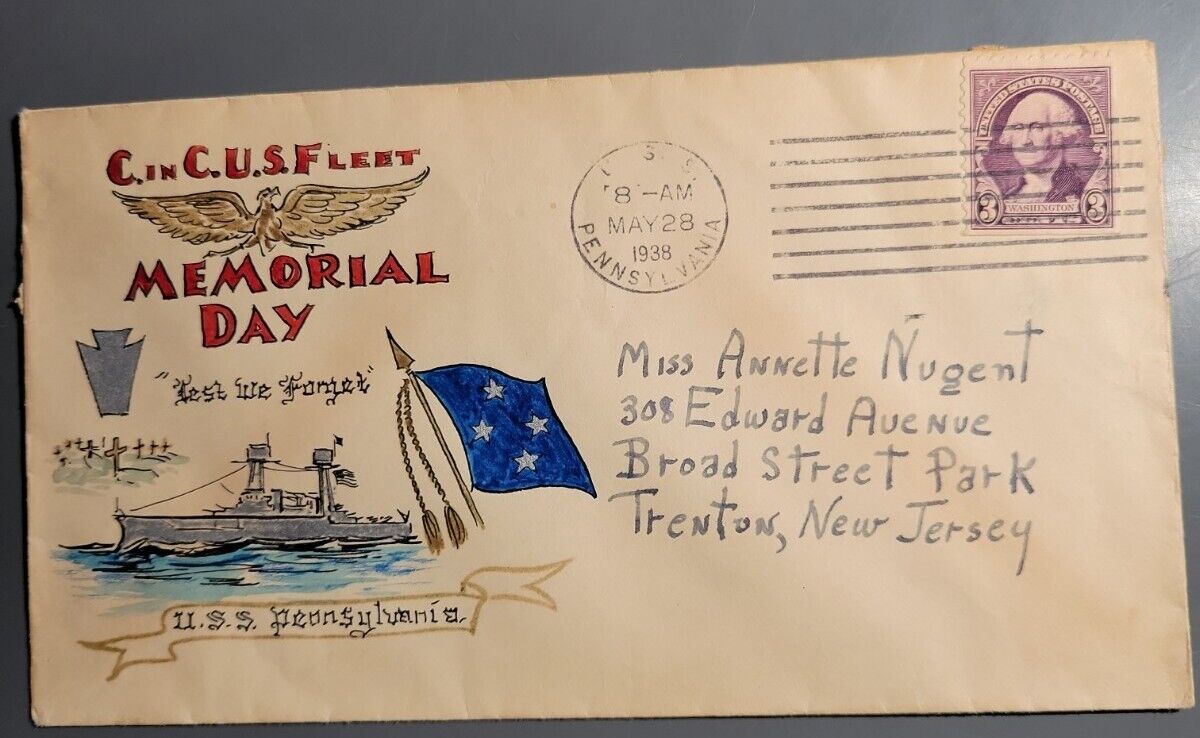 C. IN C. U.S. FLEET
MEMORIAL
DAY
"Lest We Forget"
U.S.S. Pennsylvania
U. S. S.
8 -AM
MAY 28
1938
PENNSYLVANIA
UNITED STATES POSTAGE
3 WASHINGTON 3
Miss Annette Nugent
308 Edward Avenue
Broad Street Park
Trenton, New Jersey